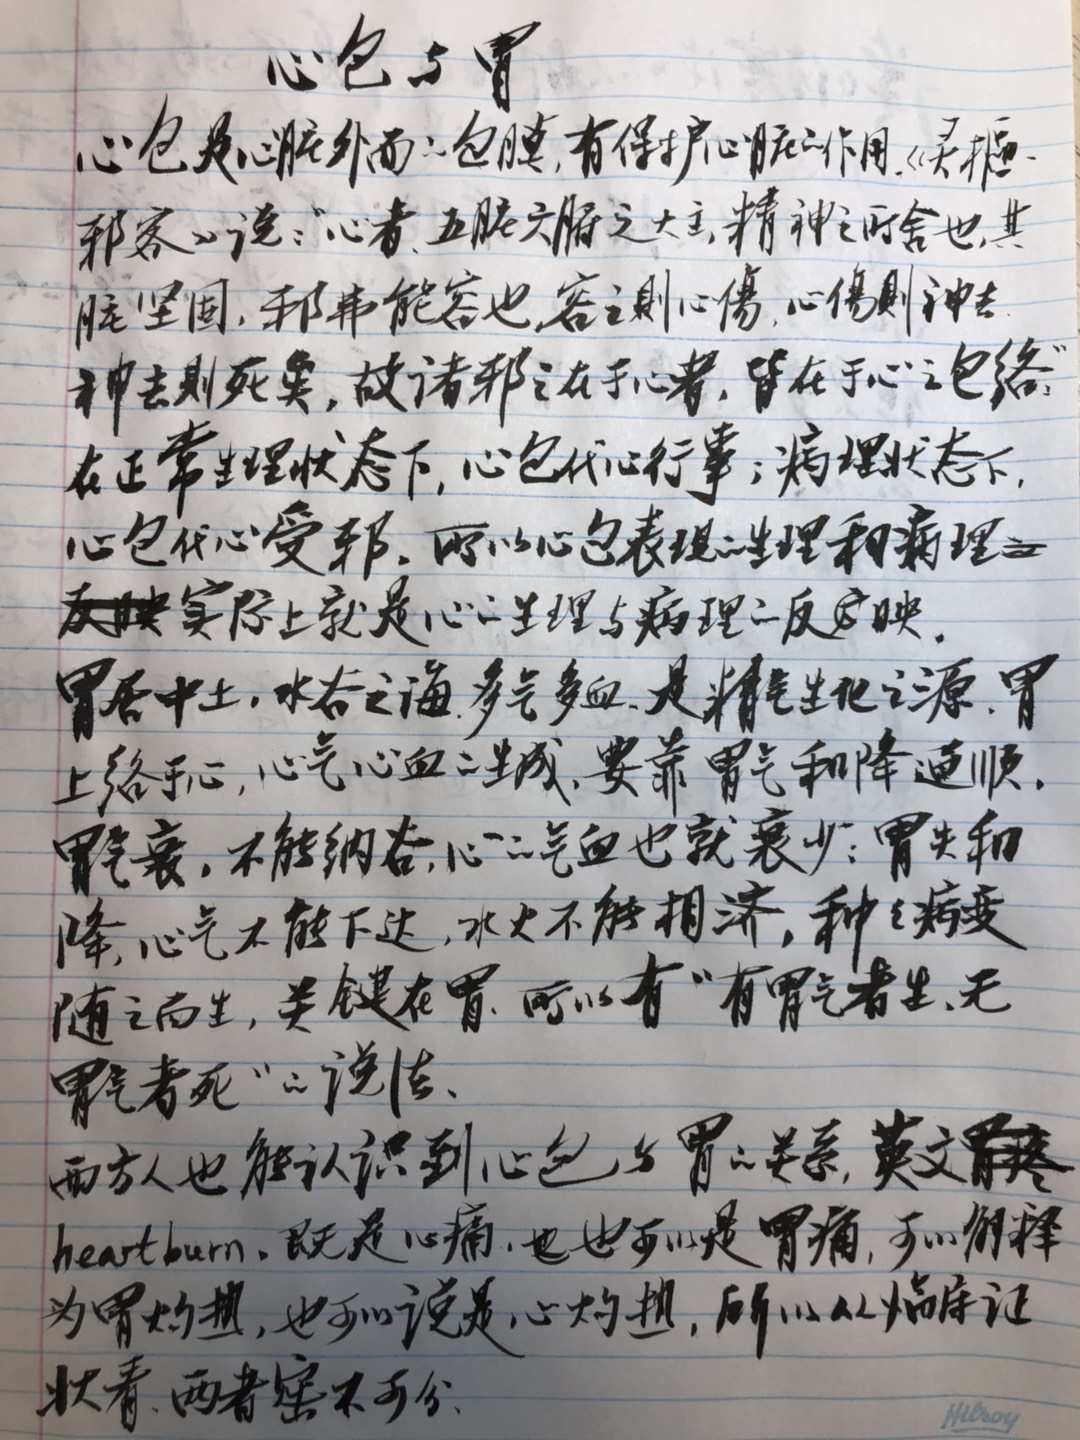 心包与胃
心包是心脏外面之包膜,有保护心脏之作用。《灵枢·
邪客》说:“心者,五脏六腑之大主,精神之所舍也,其
脏坚固,邪弗能容也,容之則心傷,心傷則神去
神去則死矣,故诸邪之在于心者,皆在于心之包络”
在正常生理状态下,心包代心行事;病理状态下,
心包代心受邪。所以心包表现之生理和病理之
反映实际上就是心之生理与病理之反映。
胃居中土,水谷之海,多气多血、是精气生化之源,胃
上络于心,心气心血之生成、要靠胃气和降通顺。
胃气衰,不能纳谷,心之气血也就衰少;胃失和
降,心气不能下达,水火不能相济,种之病变
随之而生,关键在胃、所以有“有胃气者生、无
胃气者死”之说法、
西方人也能认识到心包与胃之关系,英文胃疼
heartburn。既是心痛,也也可以是胃痛,可以解释
为胃灼热,也可以说是心灼热,所以从临床证
状看、两者密不可分、
Hilroy